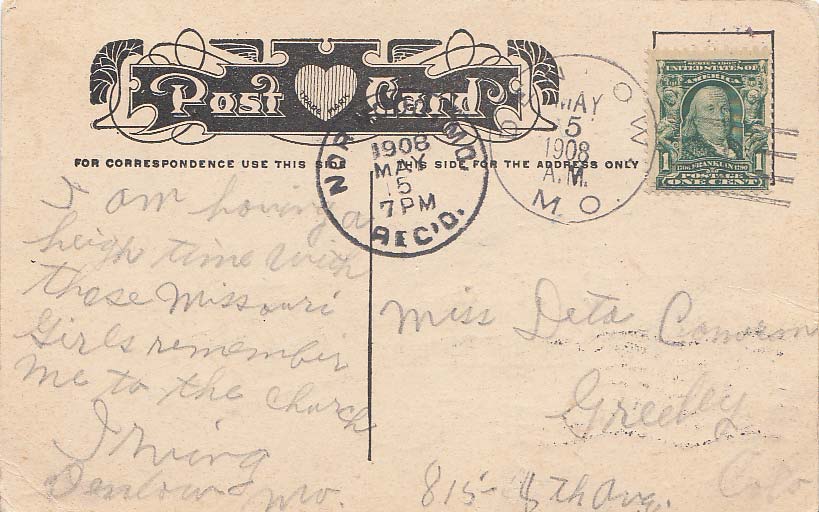 Post Card
TRADE MARK
FOR CORRESPONDENCE USE THIS
THIS SIDE FOR THE ADDRESS ONLY
1908
MAY
5
7 PM
REC'D.
MAY
5
1908
A.M.
MO.
SERIES 1902
UNITED STATES OF
AMERICA
1
FRANKLIN
1
POSTAGE
ONE CENT
I am having a
heigh time with
those Missouri
Girls remember
me to the church
Irving
Denlow Mo.
Miss Deta
Greeley
Colo
815- 8th Ave.